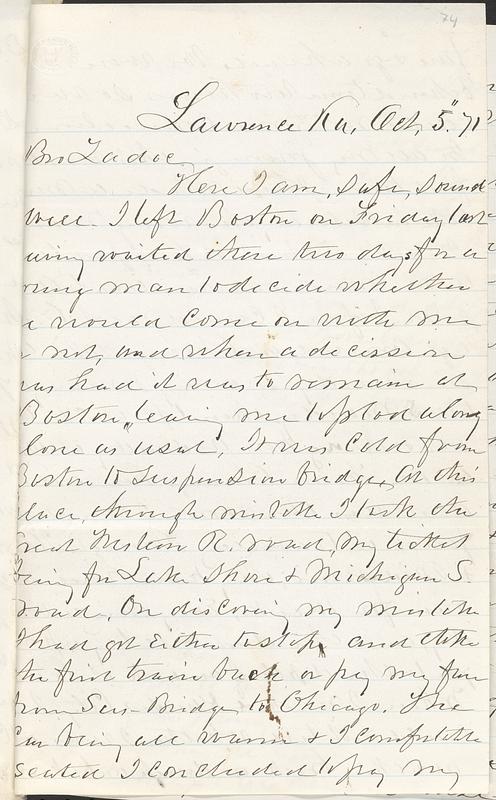 74
Lawrence Ka, Oct, 5" 71
Bro Zadoc,
Here I am, Safe, Sound
well. I left Boston on Friday last
aving waited there two days for a
oung man to decide whether
e would Come on with me
r not, and when a decission
was had it was to remain at
Boston, leaving me to plod along
lone as usal, It was Cold from
Boston to Suspension bridge, At this
lace, through mistake I took the
Great Western R. road, my ticket
being for Lake Shore & Michigan S.
road, On discovering my mistake
I had got Either to stop, and take
the first train back or pay my fare
from Sus-Bridge to Chicago. The
Car being all warm & I comfortable
seated I concluded to pay my